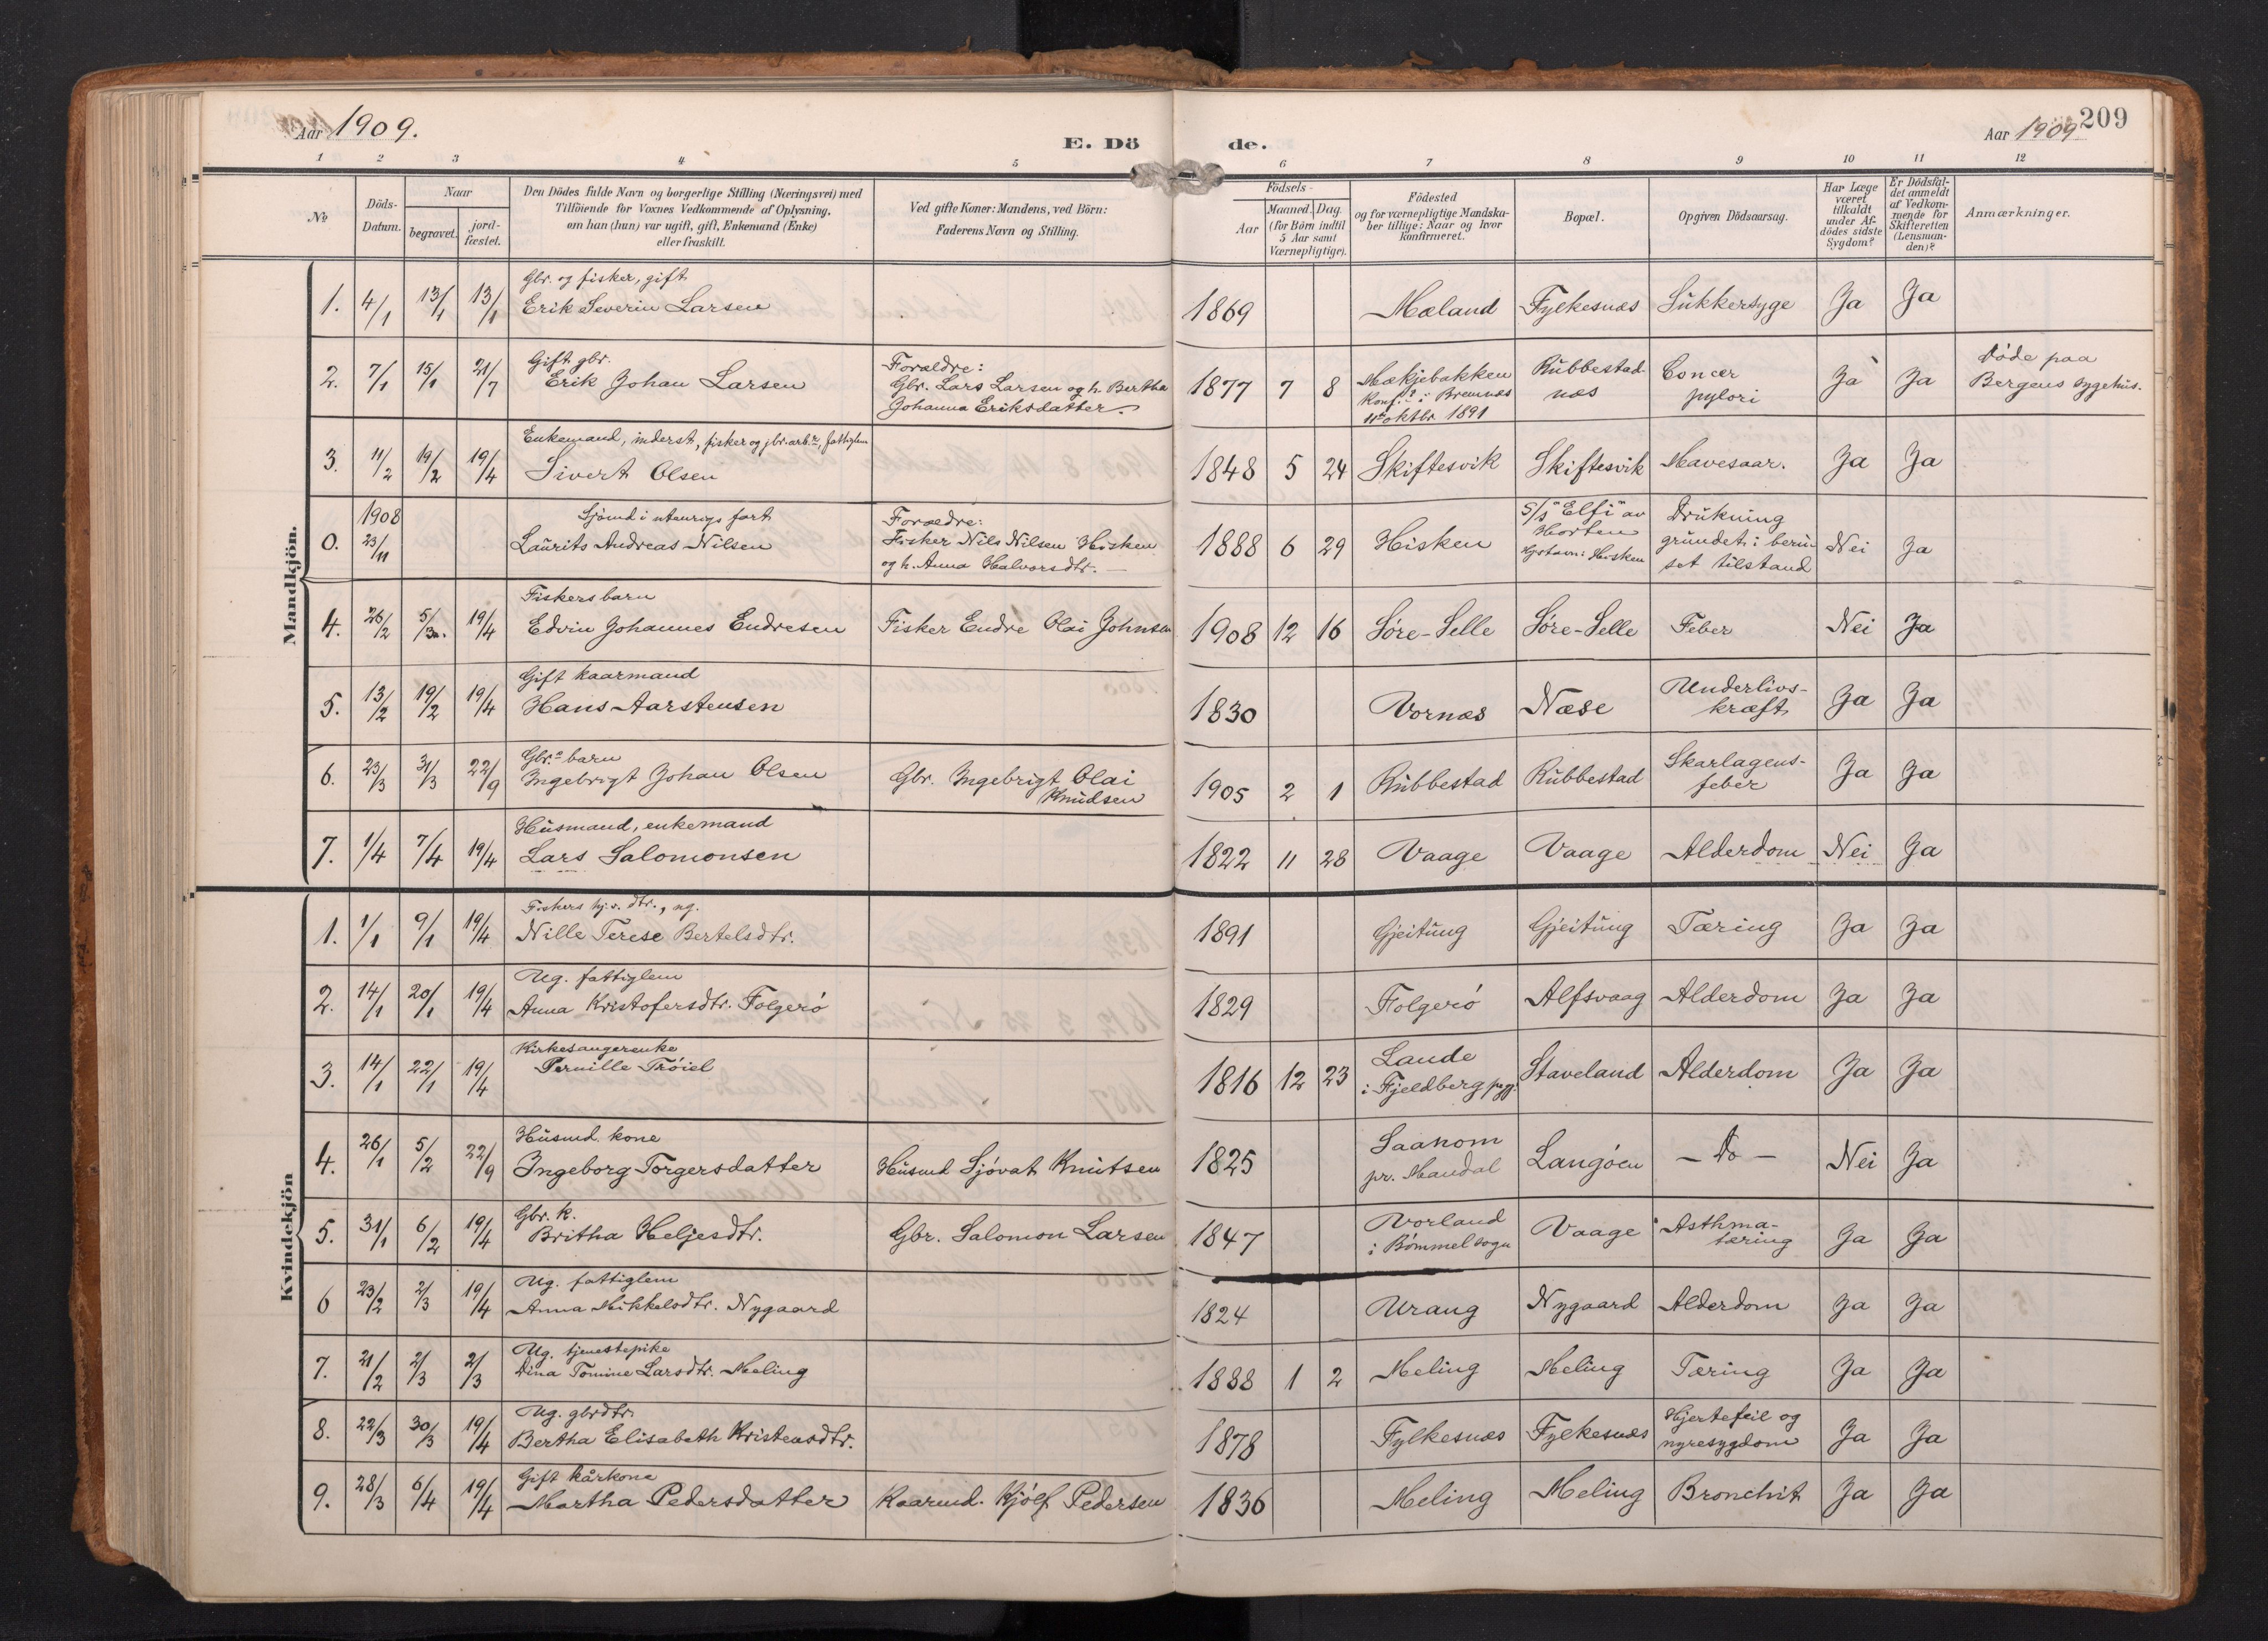 Aar 1909.
E. Dö de.
Aar 1909
209
1 2 3 4 5 6 7 8 9 10 11 12
No
Döds-
Datum.
Naar
begravet.
jord-
fæstet.
Den Dödes fulde Navn og borgerlige Stilling (Næringsvei) med
Tilföiende for Voxnes Vedkommende af Oplysning,
om han (hun) var ugift, gift, Enkemand (Enke)
eller fraskilt.
Ved gifte Koner: Mandens, ved Börn:
Faderens Navn og Stilling.
Födsels-
Aar
Maaned. Dag.
(for Börn indtil
5 Aar samt
Værnepligtige).
Födested
og for værnepligtige Mandska-
ber tillige: Naar og hvor
konfirmeret.
Bopæl.
Opgiven Dödsaarsag.
Har Læge
været
tilkaldt
under Af-
dödes sidste
Sygdom?
Er Dödsfal-
det anmeldt
af Vedkom-
mende for
Skifteretten
(Lensman-
den)?
Anmærkninger.
Mandkjön.
Gbr. og fisker, gift
1. 4/1 13/1 13/1 Erik Severin Larsen 1869 Mæland Fylkesnæs Sukkersyge Ja Ja
Gift gbr.
2. 7/1 15/1 21/7 Erik Johan Larsen
Forældre:
Gbr. Lars Larsen og h. Bertha
Johanna Eriksdatter.
1877 7 8
Mækjebakken
Konf. i Bremnæs
oktbr 1891
Rubbestad
næs
Concer
pylori
Ja Ja
Døde paa
Bergens sygehus.
Enkemand, inderst, fisker og jbr. arbr, fattiglem
3. 11/2 19/2 19/4 Sivert Olsen 1848 5 24 Skiftesvik Skiftesvik Mavesaar. Ja Ja
1908
0. 23/11
Sjømd i utenrigs fart
Laurits Andreas Nilsen
Forældre:
Fisker Nils Nilsen Hisken
og h. Anna Halvorsdtr.
1888 6 29 Hisken
S/s "Elfi" av
Horten
Hisken
Drukning
grundet i beru-
set tilstand
Nei Ja
Fiskers barn
4. 26/2 5/3 19/4 Edvin Johannes Endresen Fisker Endre Olai Johnsen 1908 12 16 Søre-Selle Søre-Selle Feber Nei Ja
Gift kaarmand
5. 13/2 19/2 19/4 Hans Aarstensen 1830 Vornæs Næse
Underlivs-
kræft
Ja Ja
Gbr. barn
6. 23/3 31/3 22/9 Ingebrigt Johan Olsen
Gbr. Ingebrigt Olai
Knudsen
1905 2 1 Rubbestad Rubbestad
Skarlagens-
feber
Ja Ja
Husmand, enkemand
7. 1/4 7/4 19/4 Lars Salomonsen 1822 11 28 Vaage Vaage Alderdom Nei Ja
Kvindekjön
Fiskers hj.v. dtr., ug.
1. 1/1 9/1 19/4 Nille Terese Bertelsdtr. 1891 Gjeitung Gjeitung Tæring Ja Ja
Ug. fattiglem
2. 14/1 20/1 19/4 Anna Kristofersdtr. Folgerø 1829 Folgerø Alfsvaag Alderdom Ja Ja
Kirkesangerenke
3. 14/1 22/1 19/4 Pernille Trøiel 1816 12 23
Lande
i Fjeldberg pgj.
Staveland Alderdom Ja Ja
Husmd. kone
4. 26/1 5/2 22/9 Ingeborg Torgersdatter Husmd Sjøvat Knutsen 1825
Saanom
pr. Mandal
Langøen - Do - Nei Ja
Gbr. k.
5. 31/1 6/2 19/4 Britha Heljesdtr. Gbr. Salomon Larsen 1847
Vorland
i Bømmel sogn
Vaage
Asthma-
tæring
Ja Ja
Ug. fattiglem
6 23/2 2/3 19/4 Anna Mikkelsdtr. Nygaard 1824 Urang Nygaard Alderdom Ja Ja
Ug. tjenestepike
7. 21/2 2/3 2/3 Dina Tomine Larsdtr. Meling 1888 1 2 Meling Meling Tæring Ja Ja
Ug. gbrdtr.
8. 22/3 30/3 19/4 Bertha Elisabeth Kristensdtr. 1878 Fylkesnæs Fylkesnæs
Hjertefeil og
nyresygdom
Ja Ja
Gift kårkone
9. 28/3 6/4 19/4 Martha Pedersdatter Kaarmd. Kjølf Pedersen 1836 Meling Meling Bronchit Ja Ja